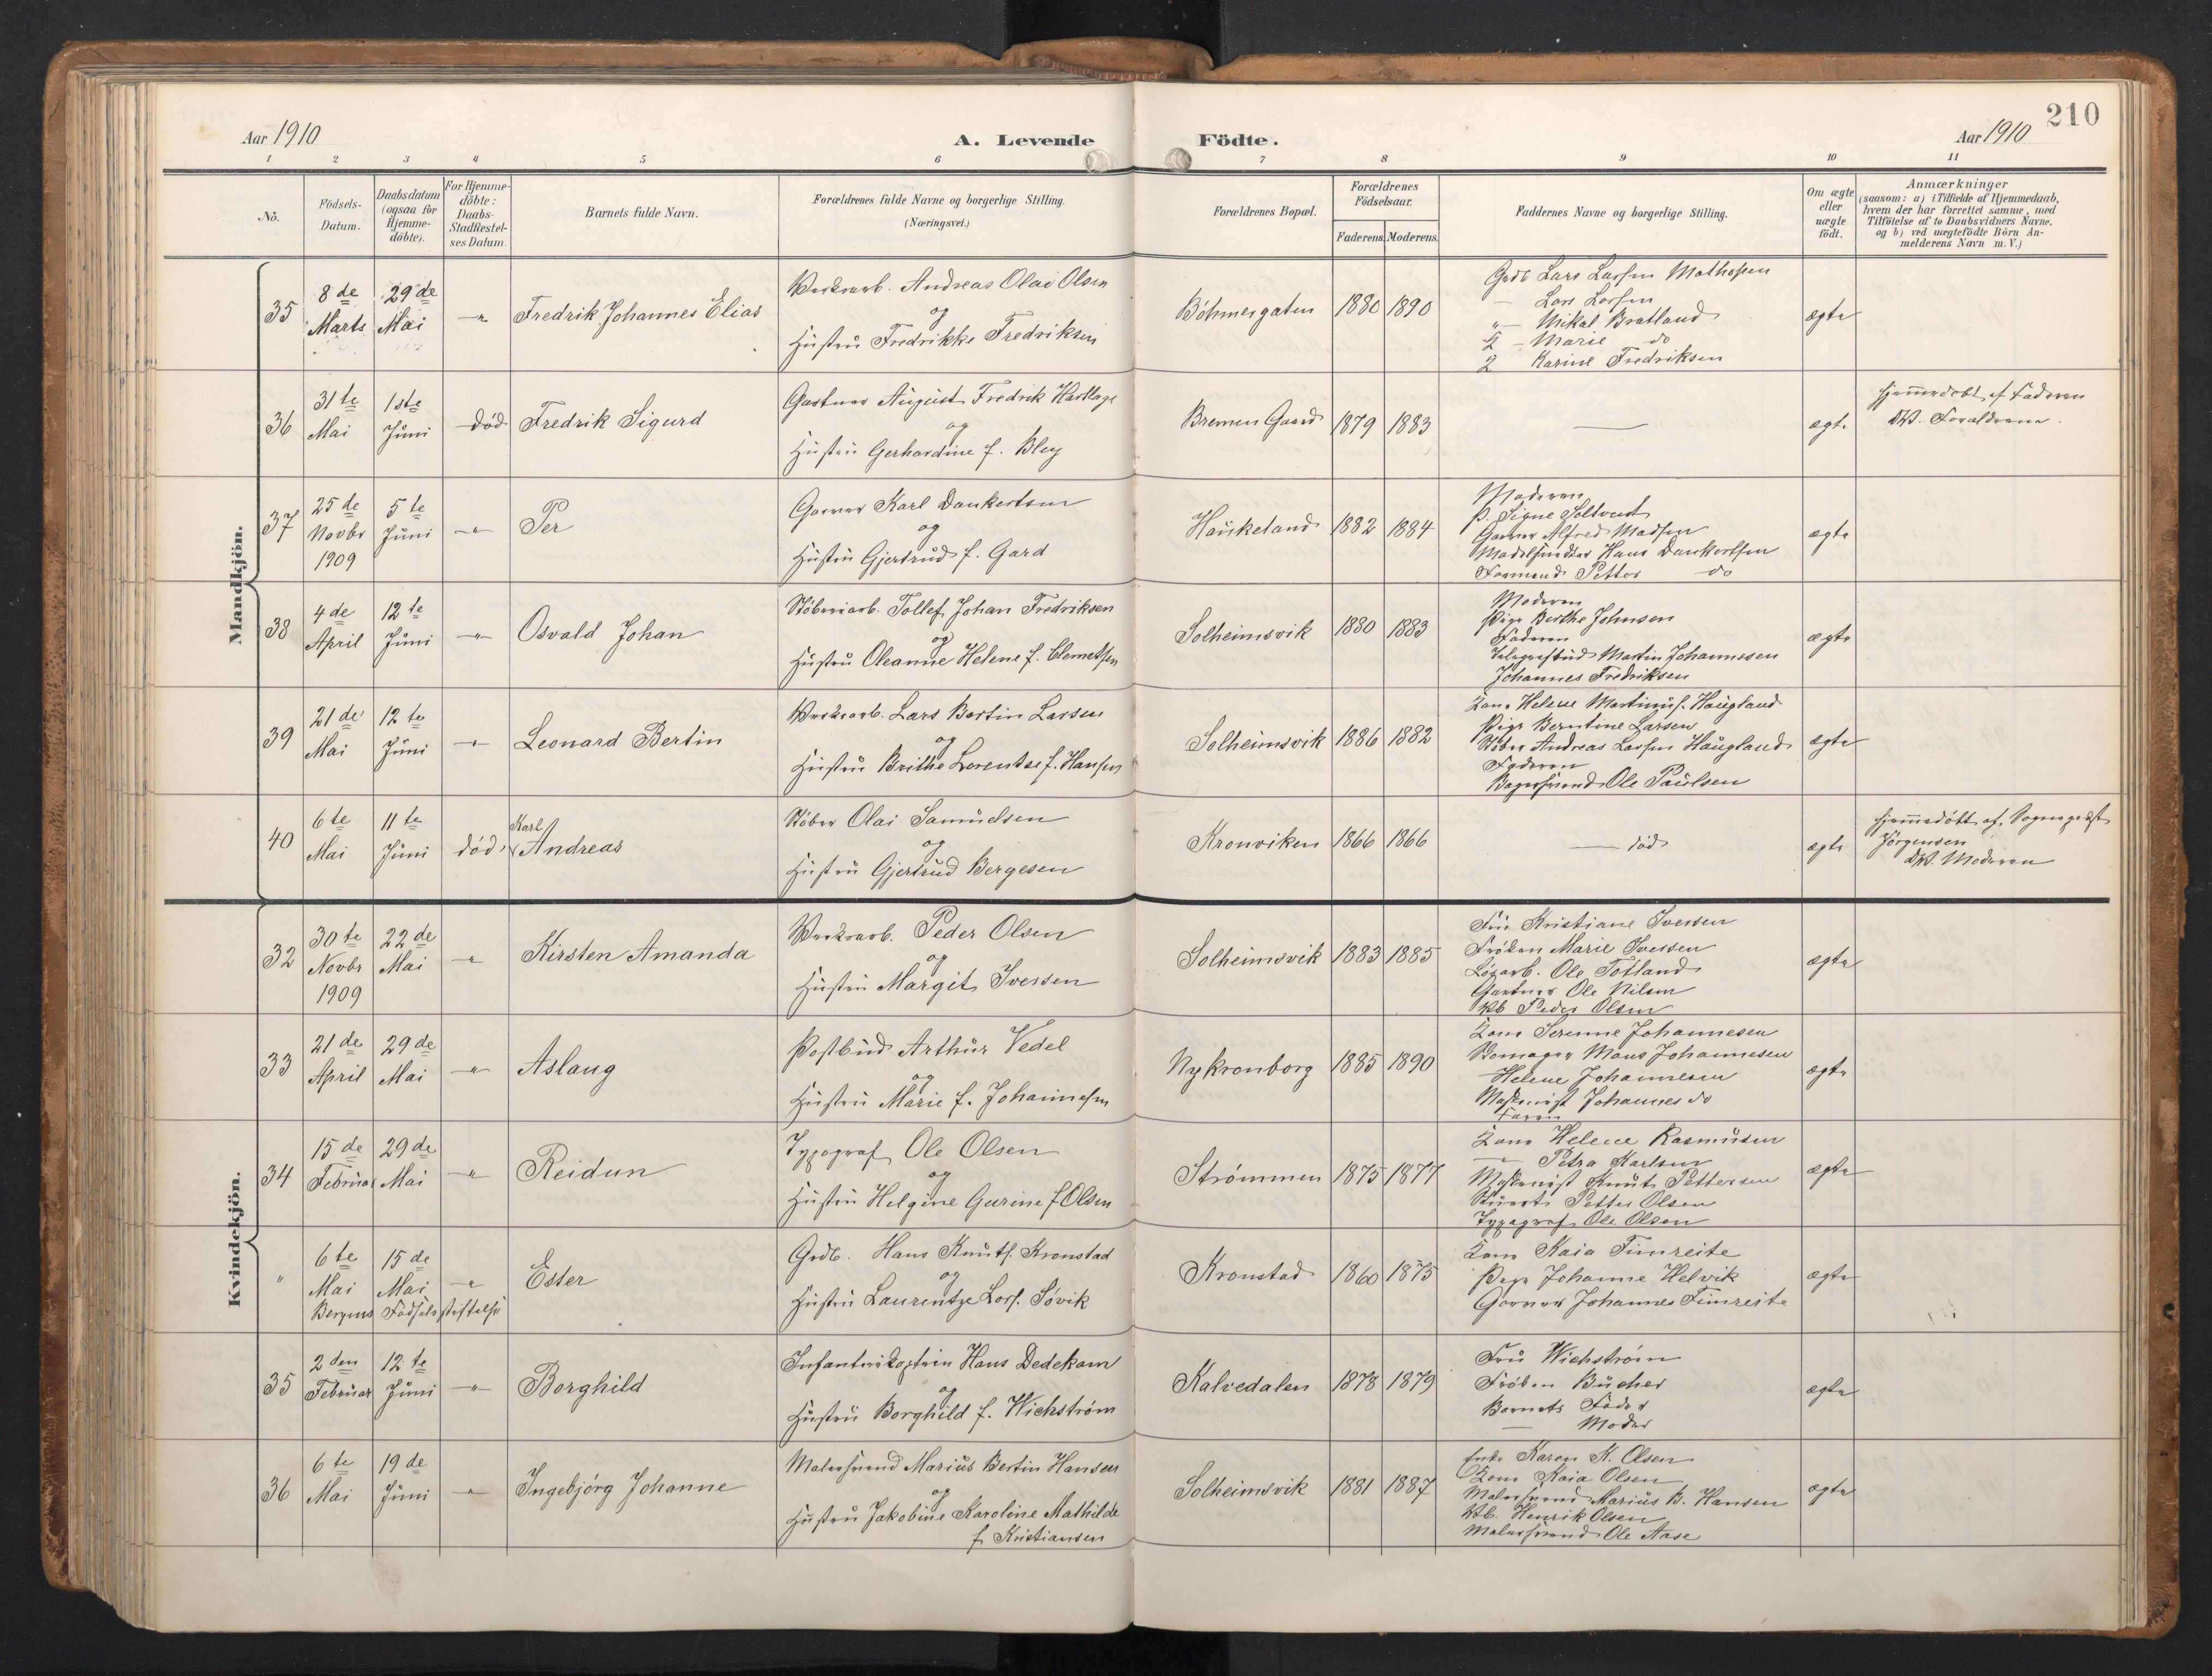 210
Aar 1910
A. Levende Födte.
Aar 1910
1 2 3 4 5 6 7 8 9 10 11
No.
Födsels-Datum.
Daabsdatum (ogsaa för Hjemme-döbte).
For Hjemme-döbte: Daabs-Stadfæstel-ses Datum.
Barnets fulde Navn.
Forældrenes fulde Navne og borgerlige Stilling. (Næringsvei.)
Forældrenes Bopæl.
Forældrenes Födselsaar.
Faderens. Moderens.
Faddernes Navne og borgerlige Stilling.
Om ægte eller uægte födt.
Anmærkninger
(saasom: a) i Tilfælde af Hjemmedaab,
hvem der har forrettet samme, med
Tilföielse af to Daabsvidners Navne.
og b) ved uægtefödte Börn An-
melderens Navn m. V.)
Mandkjön.
35 8de Marts 29de Mai -"- Fredrik Johannes Elias
Verksarb. Andreas Olai Olsen
og
Hustru Fredrikke Fredriksen
Böhmergaten 1880 1890
Grdb Lars Larsen Mathopen
— Lars Larsen
"— Mikal Bratland
K - Marie do
K Karine Fredriksen
ægte
36 31te Mai 1ste Juni död Fredrik Sigurd
Gartner August Fredrik Hartlage
og
Hustru Gerhardine f. Bley
Bremen Gaard 1879 1883
—
ægte
Hjemmedöbt af Faderen
DV. Forældrene.
37 25de Novbr 1909 5te Juni -"- Per
Garver Karl Dankertsen
og
Hustru Gjertrud f. Gard
Haukeland 1882 1884
Moderen
p. Signe Soltvedt
Garver Alfred Madsen
Modelsnedker Hans Dankertsen
Formand Petter do
ægte
38 4de April 12te Juni -"- Osvald Johan
Stöberiarb. Tollef Johan Fredriksen
og
Hustru Oleanne Helene f. Clemetsen
Solheimsvik 1880 1883
Moderen
Pige Berthe Johnsen
Faderen
Telegrafbud Martin Johannesen
Johannes Fredriksen
ægte
39 21de Mai 12te Juni -"- Leonard Bertin
Verksarb. Lars Bertin Larsen
og
Hustru Brithe Lorentse f. Hansen
Solheimsvik 1886 1882
Kone Helene Martinus. Haugland
Pige Berntine Larsen
Stöber Andreas Larsen Haugland
Faderen
Bagersvend Ole Paulsen
ægte
40 6te Mai 11te Juni död Karl Andreas
Stöber Olai Samuelsen
og
Hustru Gjertrud Bergesen
Kronviken 1866 1866
— död
ægte
Hjemmedöbt af Sognepræst
Jörgensen
DV. Moderen
Kvindekjön.
32 30te Novbr 1909 22de Mai -"- Kirsten Amanda
Verksarb. Peder Olsen
og
Hustru Margit Iversen
Solheimsvik 1883 1885
Fru Kristiane Iversen
Fröken Marie Iversen
Lösarb. Ole Totland
Gartner Ole Nilsen
Vb Peder Olsen
ægte
33 21de April 29de Mai -"- Aslaug
Postbud Arthur Vedel
og
Hustru Marie f. Johannesen
Ny Kronborg 1885 1890
Kone Serenne Johannesen
Mons Johannesen
Helene Johannesen
Maskinist Johannes do
Faren
ægte
34 15de Februar 29de Mai -"- Reidun
Typograf Ole Olsen
og
Hustru Helgine Gurine f Olsen
Strömmen 1875 1877
Kone Helene Rasmusen
—"— Petra Karlsen
Maskinist Knut Pettersen
Stuert Petter Olsen
Typograf Ole Olsen
ægte
" 6te Mai 15de Mai -"- Ester
Bergens Födselsstiftelse
Grdb. Hans Knuts. Kronstad
og
Hustru Laurentze Lars. Sövik
Kronstad 1860 1875
Kone Kaia Timreite
Pige Johanne Helvik
Garver Johannes Timreite
ægte
35 2den Februar 12te Juni -"- Borghild
Infanterikaptein Hans Dedekam
og
Hustru Borghild f. Wichström
Kalvedalen 1878 1879
Fru Wichström
Fröken Bücher
Barnets Fader
— Moder
ægte
36 6te Mai 19de Juni -"- Ingebjörg Johanne
Malersvend Marius Bertin Hansen
og
Hustru Jakobine Karoline Mathilde
f. Kristiansen
Solheimsvik 1881 1887
Enke Karen K. Olsen
Kone Kaia Olsen
Malersvend Marius B. Hansen
Vb. Henrik Olsen
Malersvend Ole Aase
ægte